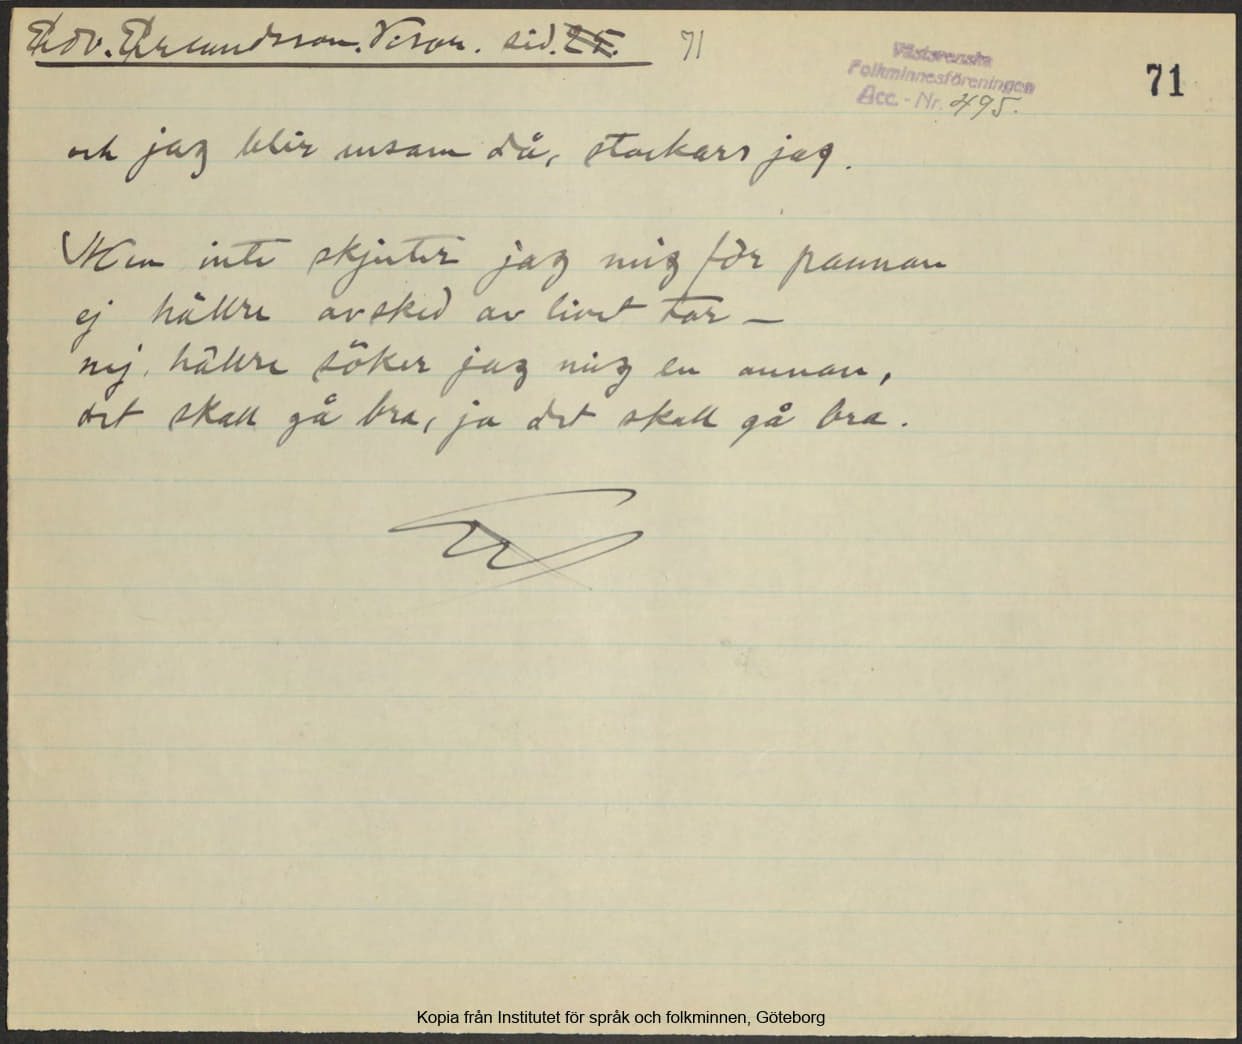 Edv. Ermundsson. Visor. sid. 71
Västsvenska
Folkminnesföreningen
Acc. - Nr. 495.
71
och jag blir ensam då, stackars jag.
Men inte skjuter jag mig för pannan
ej hällre avsked av livet tar –
nej, hällre söker jag mig en annan,
det skall gå bra, ja det skall gå bra.
Kopia från Institutet för språk och folkminnen, Göteborg